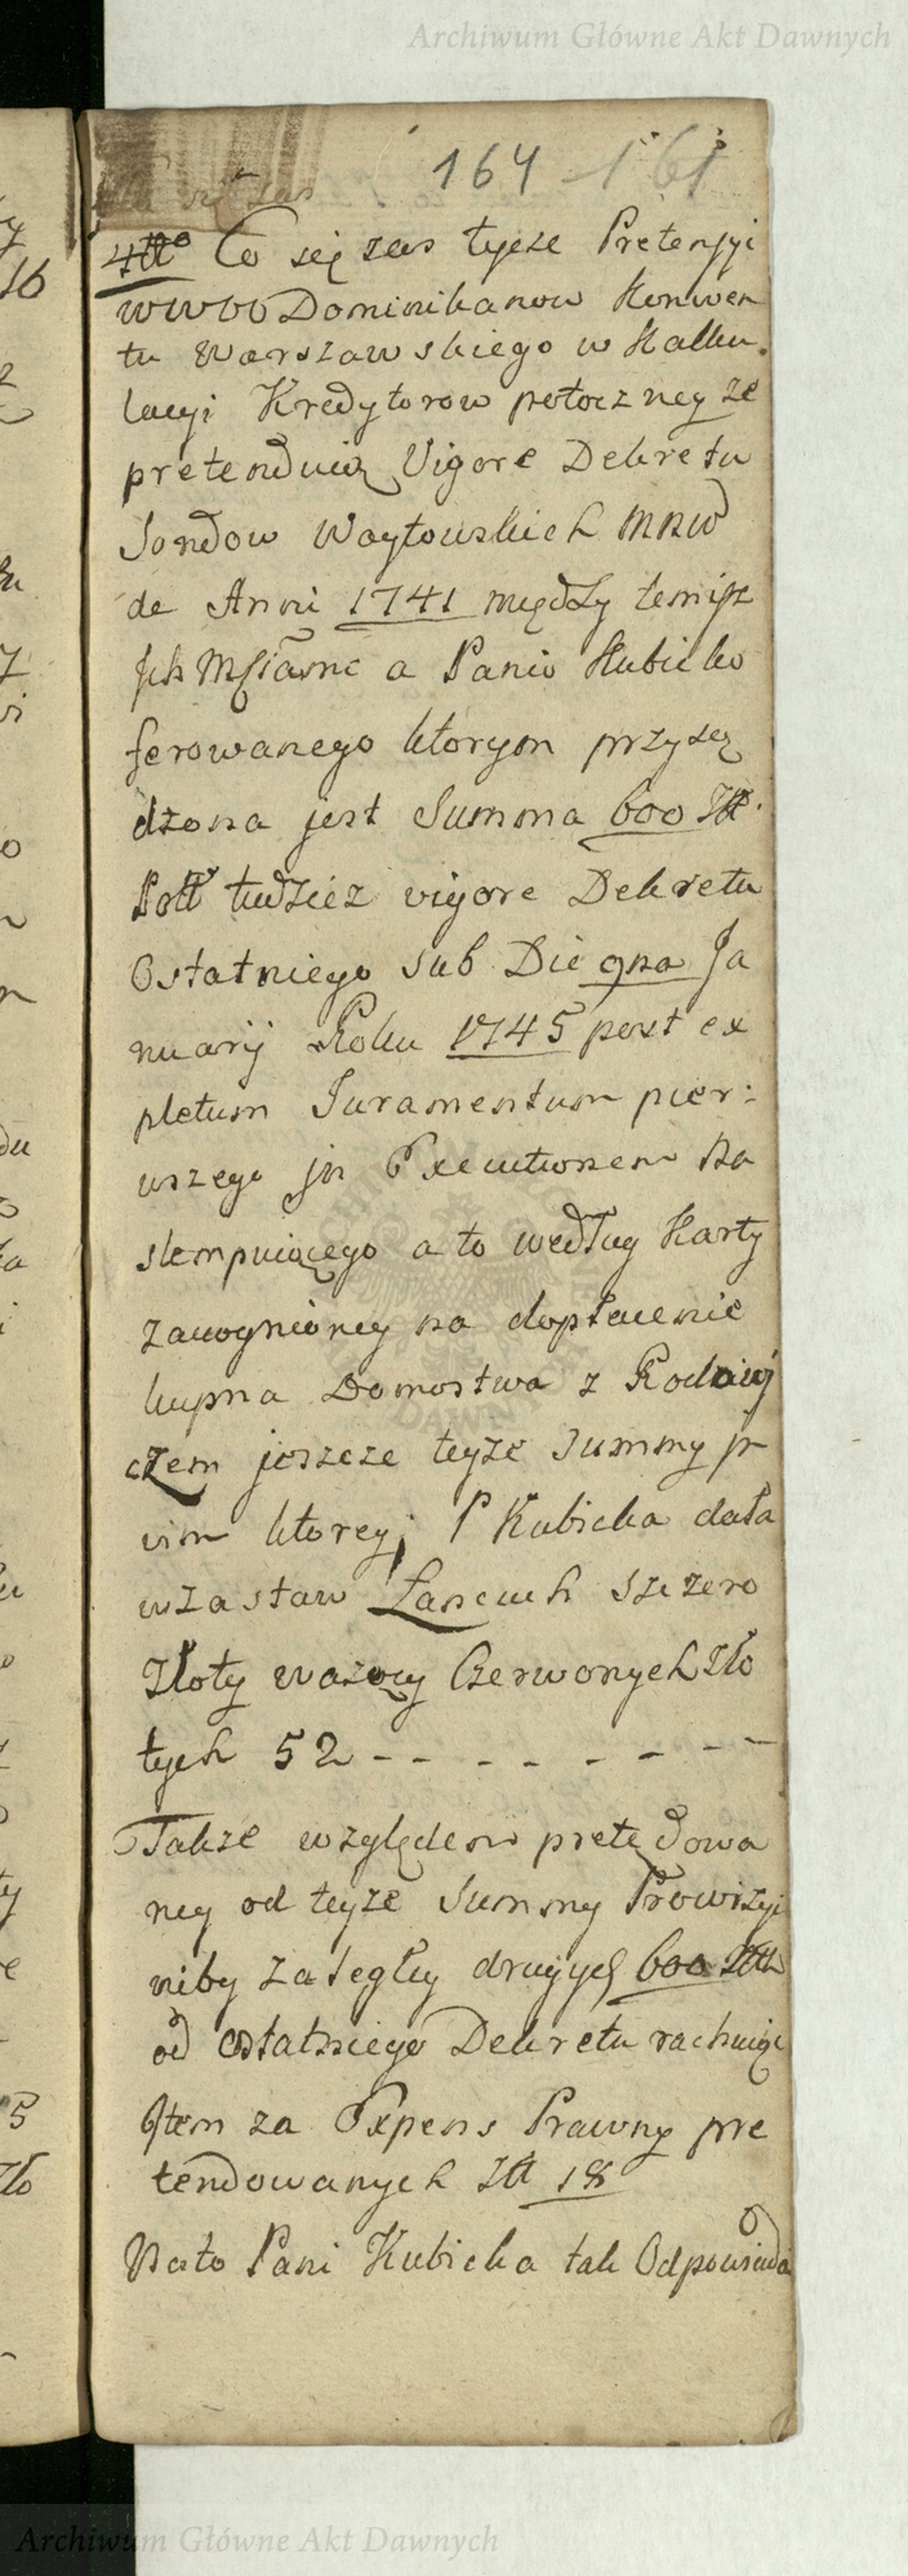 Archiwum Główne Akt Dawnych
164 161
4to Co się zas tycze Pretensyi
WWOO Dominikanow Konwen
tu Warszawskiego w Kalku.
lacyi Kredytorow potoczney ze
pretenduią Vigore Dekretu
Sondow Woytowskich
de Anni 1741 między temisz
a Panio Kubicko
ferowanego ktorym przysą
dzona jest Summa 600 Zł.
Poll tudziez vigore Dekretu
Ostatniego Sub Die 9na Ja
nuarij Roku 1745 post ex
pletum Juramentum pier:
wszego jn Executionem na
stempuiącego a to według Karty
zaciognioney na dopłacenie
kupna Domostwa z Rodzicy
czem jeszcze teyze Summy jn
vim ktorey P Kubicka dała
w zastaw Łancuch szczero
Złoty wazący Czerwonych Zło
tych 52 - - - - - - - -
Takze względem pretędowa
ney od teyze Summy Prowizyi
niby zategłey drugych 600 Złł
od ostatniego Dekretu rachuiąc
Item za Expens Prawny pre
tendowanych Złł 18
Nato Pani Kubicka tak Odpowiada
Archiwum Główne Akt Dawnych